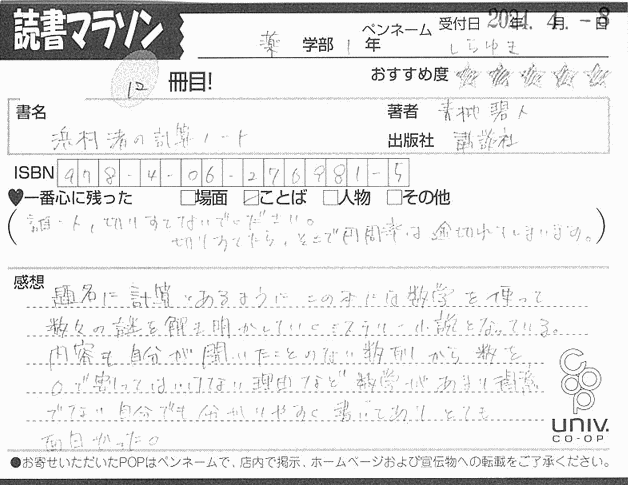 読書マラソン
薬 学部 1 年 ペンネーム しらゆき 受付日 2021年 4月 -8日
12 冊目!
おすすめ度
書名 浜村渚の計算ノート
著者 青柳碧人
出版社 講談社
ISBN 978-4-06-276981-5
♥一番心に残った □場面 ☑ことば □人物 □その他
(誰一人、切りすてないでください。
切りすてたら、そこで円周率は途切れてしまいます。)
感想
題名に計算とあるように この本には数学を使って
数々の謎を解き明かしていくミステリー小説となっている。
内容も自分が聞いたことのない数列から数を
0で割ってはいけない理由など 数学があまり得意
でない自分でも分かりやすく書いてあり とても
面白かった。
coop
UNIV.
CO-OP
●お寄せいただいたPOPはペンネームで、店内で掲示、ホームページおよび宣伝物への転載をご了承ください。